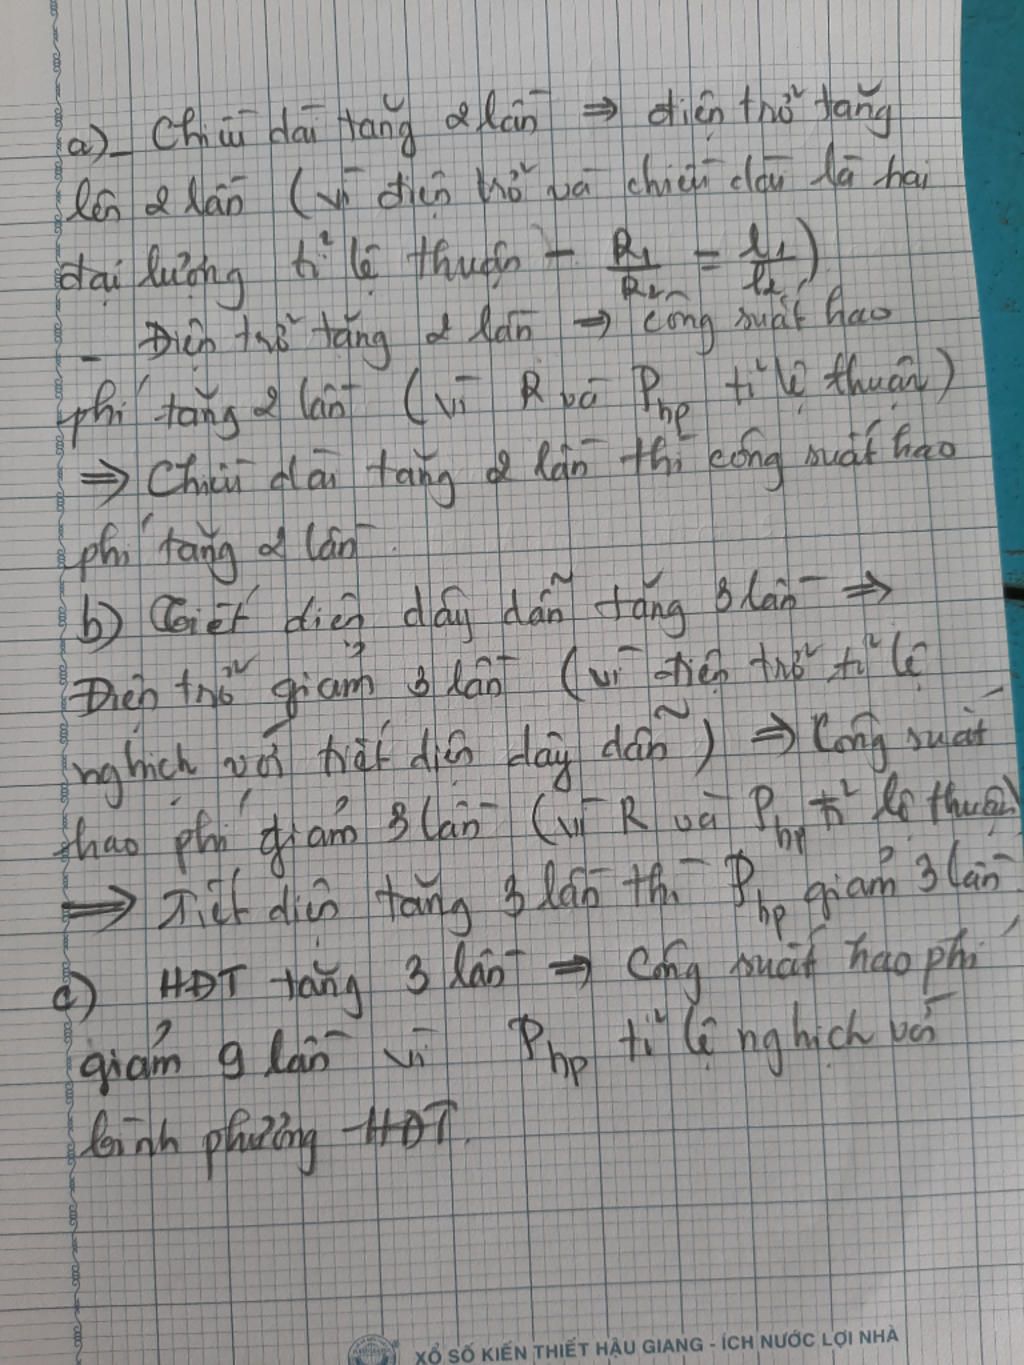 a) - Chiều dài tăng 2 lần ⇒ điện trở tăng
lên 2 lần (vì điện trở và chiều dài là hai
đại lượng tỉ lệ thuận - R₁/R₂ = l₁/l₂)
- Điện trở tăng 2 lần ⇒ công suất hao
phí tăng 2 lần (vì R và P hp tỉ lệ thuận)
⇒ Chiều dài tăng 2 lần thì công suất hao
phí tăng 2 lần.
b) Tiết diện dây dẫn tăng 3 lần ⇒
Điện trở giảm 3 lần (vì điện trở tỉ lệ
nghịch với tiết diện dây dẫn) ⇒ Công suất
hao phí giảm 3 lần (vì R và P hp tỉ lệ thuận)
⇒ Tiết diện tăng 3 lần thì P hp giảm 3 lần
c) HĐT tăng 3 lần ⇒ Công suất hao phí
giảm 9 lần vì P hp tỉ lệ nghịch với
bình phương HĐT.
XỔ SỐ KIẾN THIẾT HẬU GIANG - ÍCH NƯỚC LỢI NHÀ